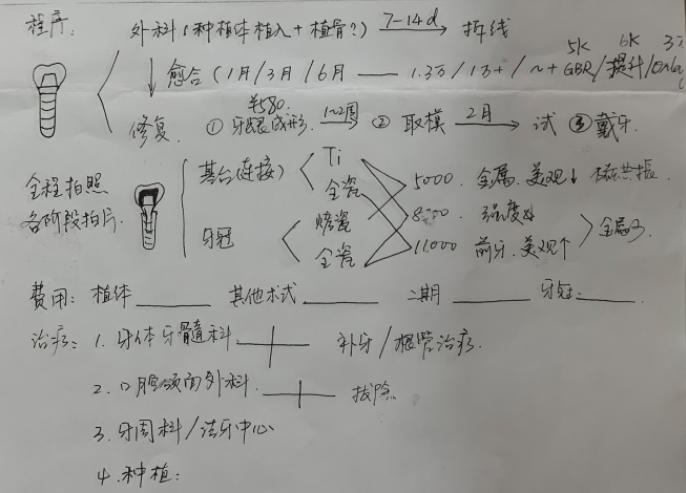 程序: 外科(种植体植入+植骨?) 7-14d 拆线
5K 6K 3万
愈合(1月/3月/6月 —— 1.3万/1万+/~+GBR/提升/Onlay
¥580.
修复. ① 牙龈成形. 1~2周 ② 取模 2月 试 ③ 戴牙.
全程拍照 各阶段拍片.
基台(连接) Ti 全瓷
牙冠 烤瓷 全瓷
5000. 金属. 美观↓ 磁共振.
8000. 强度
11000 前牙. 美观个 全瓷
费用: 植体____ 其他术式____ 二期____ 牙冠:____
治疗: 1. 牙体牙髓科 补牙/根管治疗.
2. 口腔颌面外科. 拔除
3. 牙周科/洁牙中心
4. 种植: